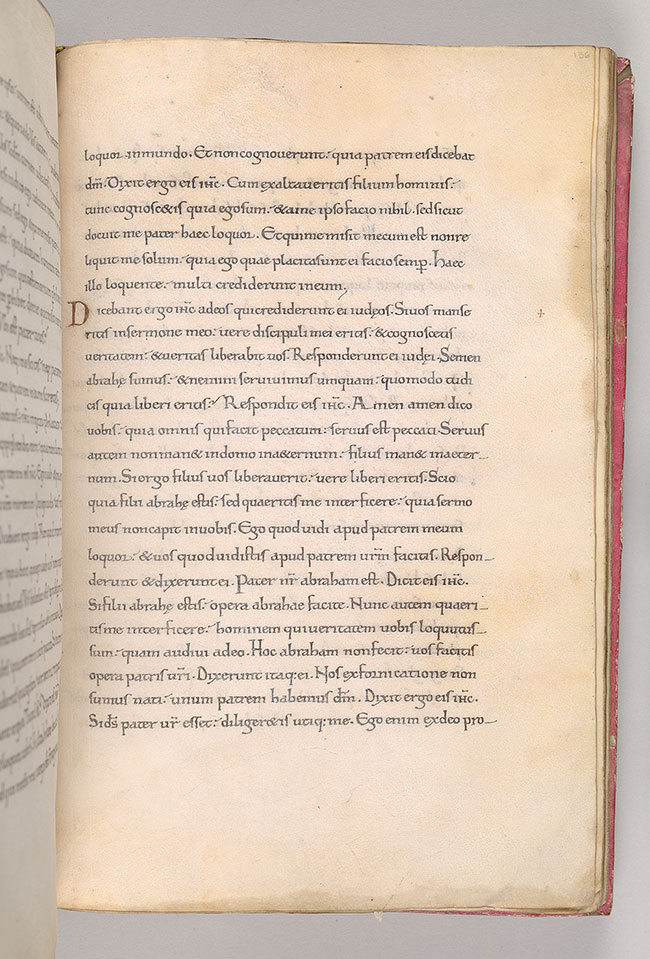 136
loquor in mundo. Et non cognoverunt: quia patrem eis dicebat
dm̄. Dixit ergo eis ih̄c. Cum exaltaveritis filium hominis:
tunc cognosc&is quia ego sum. & a me ipso facio nihil. sed sicut
docuit me pater haec loquor. Et qui me misit mecum est non re
liquit me solum. quia ego quae placita sunt ei facio semp̄. Haec
illo loquente: multi crediderunt in eum;
Dicebant ergo ih̄c ad eos qui crediderunt ei iudęos. Si vos manse
ritis in sermone meo: vere discipuli mei eritis: & cognoscetis
veritatem: & veritas liberabit vos. Responderunt ei iudęi. Semen
abrahę sumus: & nemini servivimus umquam: quomodo tu di
cis quia liberi eritis? Respondit eis ih̄c. Amen amen dico
vobis: quia omnis qui facit peccatum: servus est peccati. Servus
autem non man& in domo in a&ernum: filius man& in aeter-
num. Si orgo filius vos liberaverit: vere liberi eritis. Scio
quia filii abrahę estis: sed quaeritis me interficere: quia sermo
meus non capit in vobis. Ego quod vidi apud patrem meum
loquor: & vos quod vidistis apud patrem vrm̄ facitis. Respon-
derunt & dixerunt ei. Pater nr̄ abraham est. Dicit eis ih̄c.
Si filii abrahę estis: opera abrahae facite. Nunc autem quaeri-
tis me interficere: hominem qui veritatem vobis loquutus-
sum: quam audivi a deo. Hoc abraham non fecit: vos facitis
opera patris vr̄i. Dixerunt itaq: ei. Nos ex fornicatione non
sumus nati: unum patrem habemus dm̄. Dixit ergo eis ih̄c.
Si ds̄ pater vr̄ esset: diliger&is utiq: me. Ego enim ex deo pro-